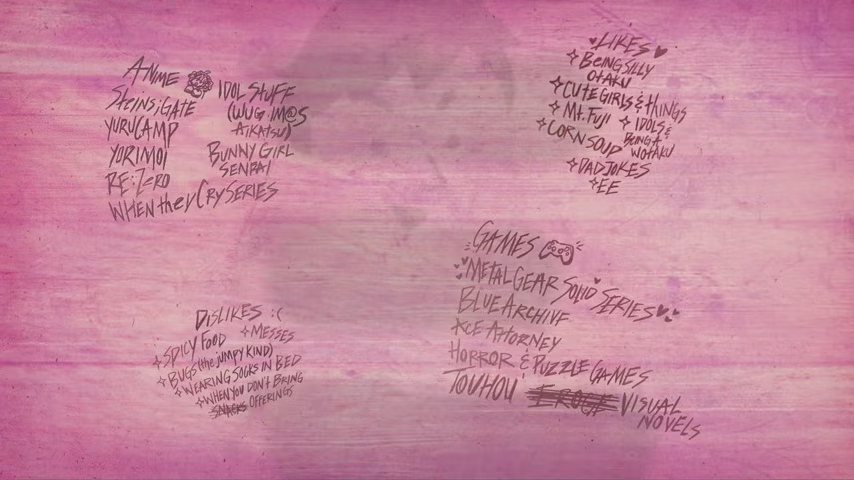 ANIME
Steins;GATE
YURUCAMP
YORIMOI
RE:ZERO
WHEN they CRY SERIES
IDOL STUFF
(WUG IM@S
AIKATSU)
BUNNY GIRL
SENPAI
LIKES
BEING SILLY
OTAKU
CUTE GIRLS & tHINGS
Mt. FUJI
IDOLS &
BEING A
WOTAKU
CORN SOUP
DAD JOKES
EE
GAMES
METAL GEAR SOLID SERIES
BLUE ARCHIVE
ACE ATTORNEY
HORROR & PUZZLE GAMES
TOUHOU EROGE VISUAL
NOVELS
DISLIKES :(
SPICY FOOD
MESSES
BUGS (the JUMPY KIND)
WEARING SOCKS IN BED
WHEN YOU DON'T BRING
SNACKS OFFERINGS